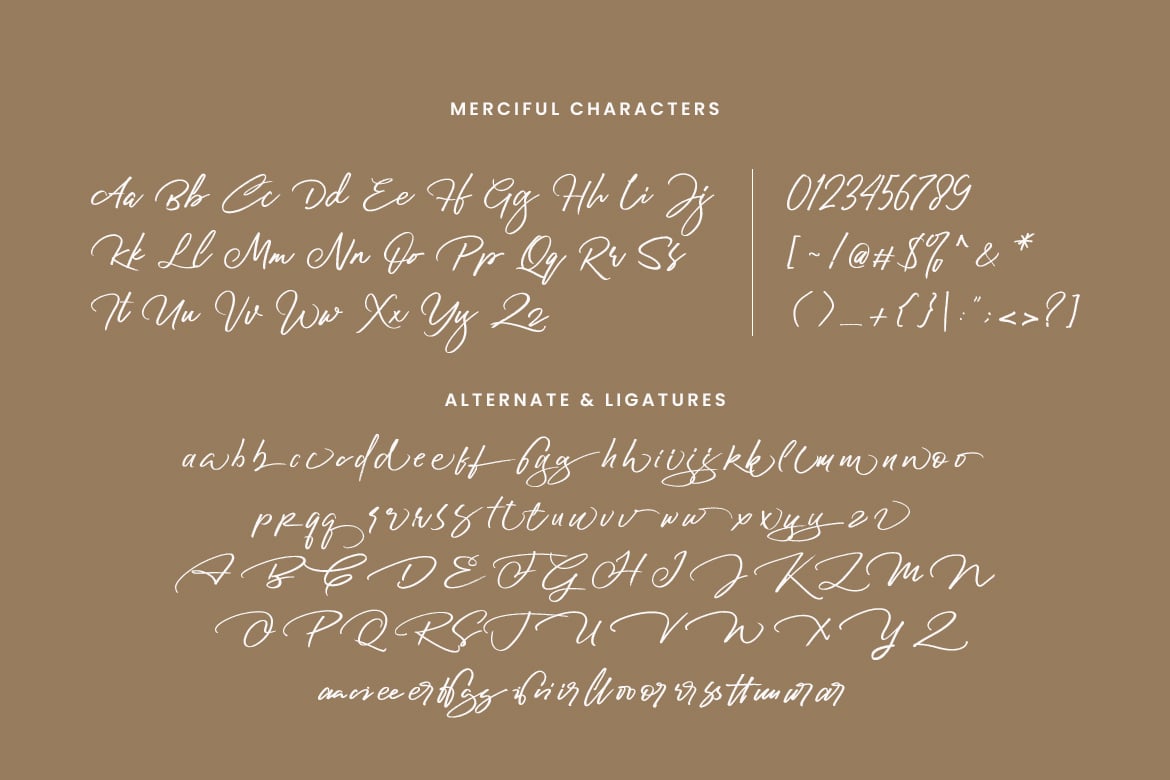 MERCIFUL CHARACTERS
Aa Bb Cc Dd Ee Ff Gg Hh Ii Jj
Kk Ll Mm Nn Oo Pp Qq Rr Ss
Tt Uu Vv Ww Xx Yy Zz
0123456789
[ ~ ! @ # $ % ^ & *
( ) _ + { } | : " ; < > ? ]
ALTERNATE & LIGATURES
a a b b c c d d e e f f g g h h i i j j k k l l m m n n o o
p p q q r r s s t t u u v v w w x x y y z z
A B C D E F G H I J K L M N
O P Q R S T U V W X Y Z